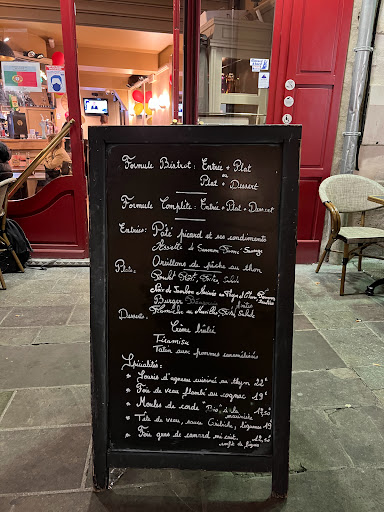 Formule Bistrot : Entrée + Plat
ou
Plat + Dessert
Formule Complète : Entrée + Plat + Dessert
Entrées : Pâté picard et ses condiments
Assiette de Saumon Fumé
Plats : Oreillons de pêche au thon
Poulet Rôti, Frites, Salade
Noix de Jambon Marinée au Thym
Burger frites
Desserts : Flamiche au Maroilles, Frites, Salade
Crème brûlée
Tiramisu
Tatin aux pommes caramélisées
Spécialités :
* Souris d'agneau cuisinée au thym 22€
* Foie de veau flambé au cognac 19€
* Moules de corde "Bio" à la marinière 17,50
* Tête de veau, sauce Gribiche, légumes 19€
* Foie gras de canard mi cuit,
confit de figues